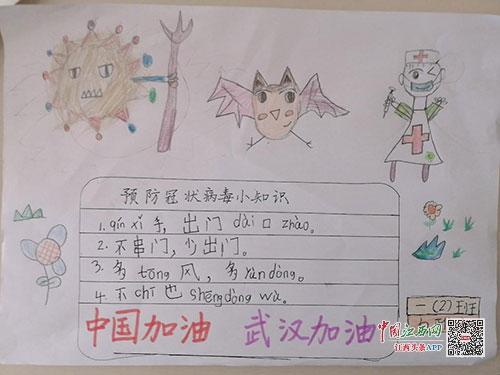 预防冠状病毒小知识
1. qín xǐ 手，出门 dài 口 zhào。
2. 不串门，少出门。
3. 多 tōng 风，多 yùn dòng。
4. 不 chī 也 shēng dòng wù。
中国加油 武汉加油
一(2)班
中国江西网
江西头条APP